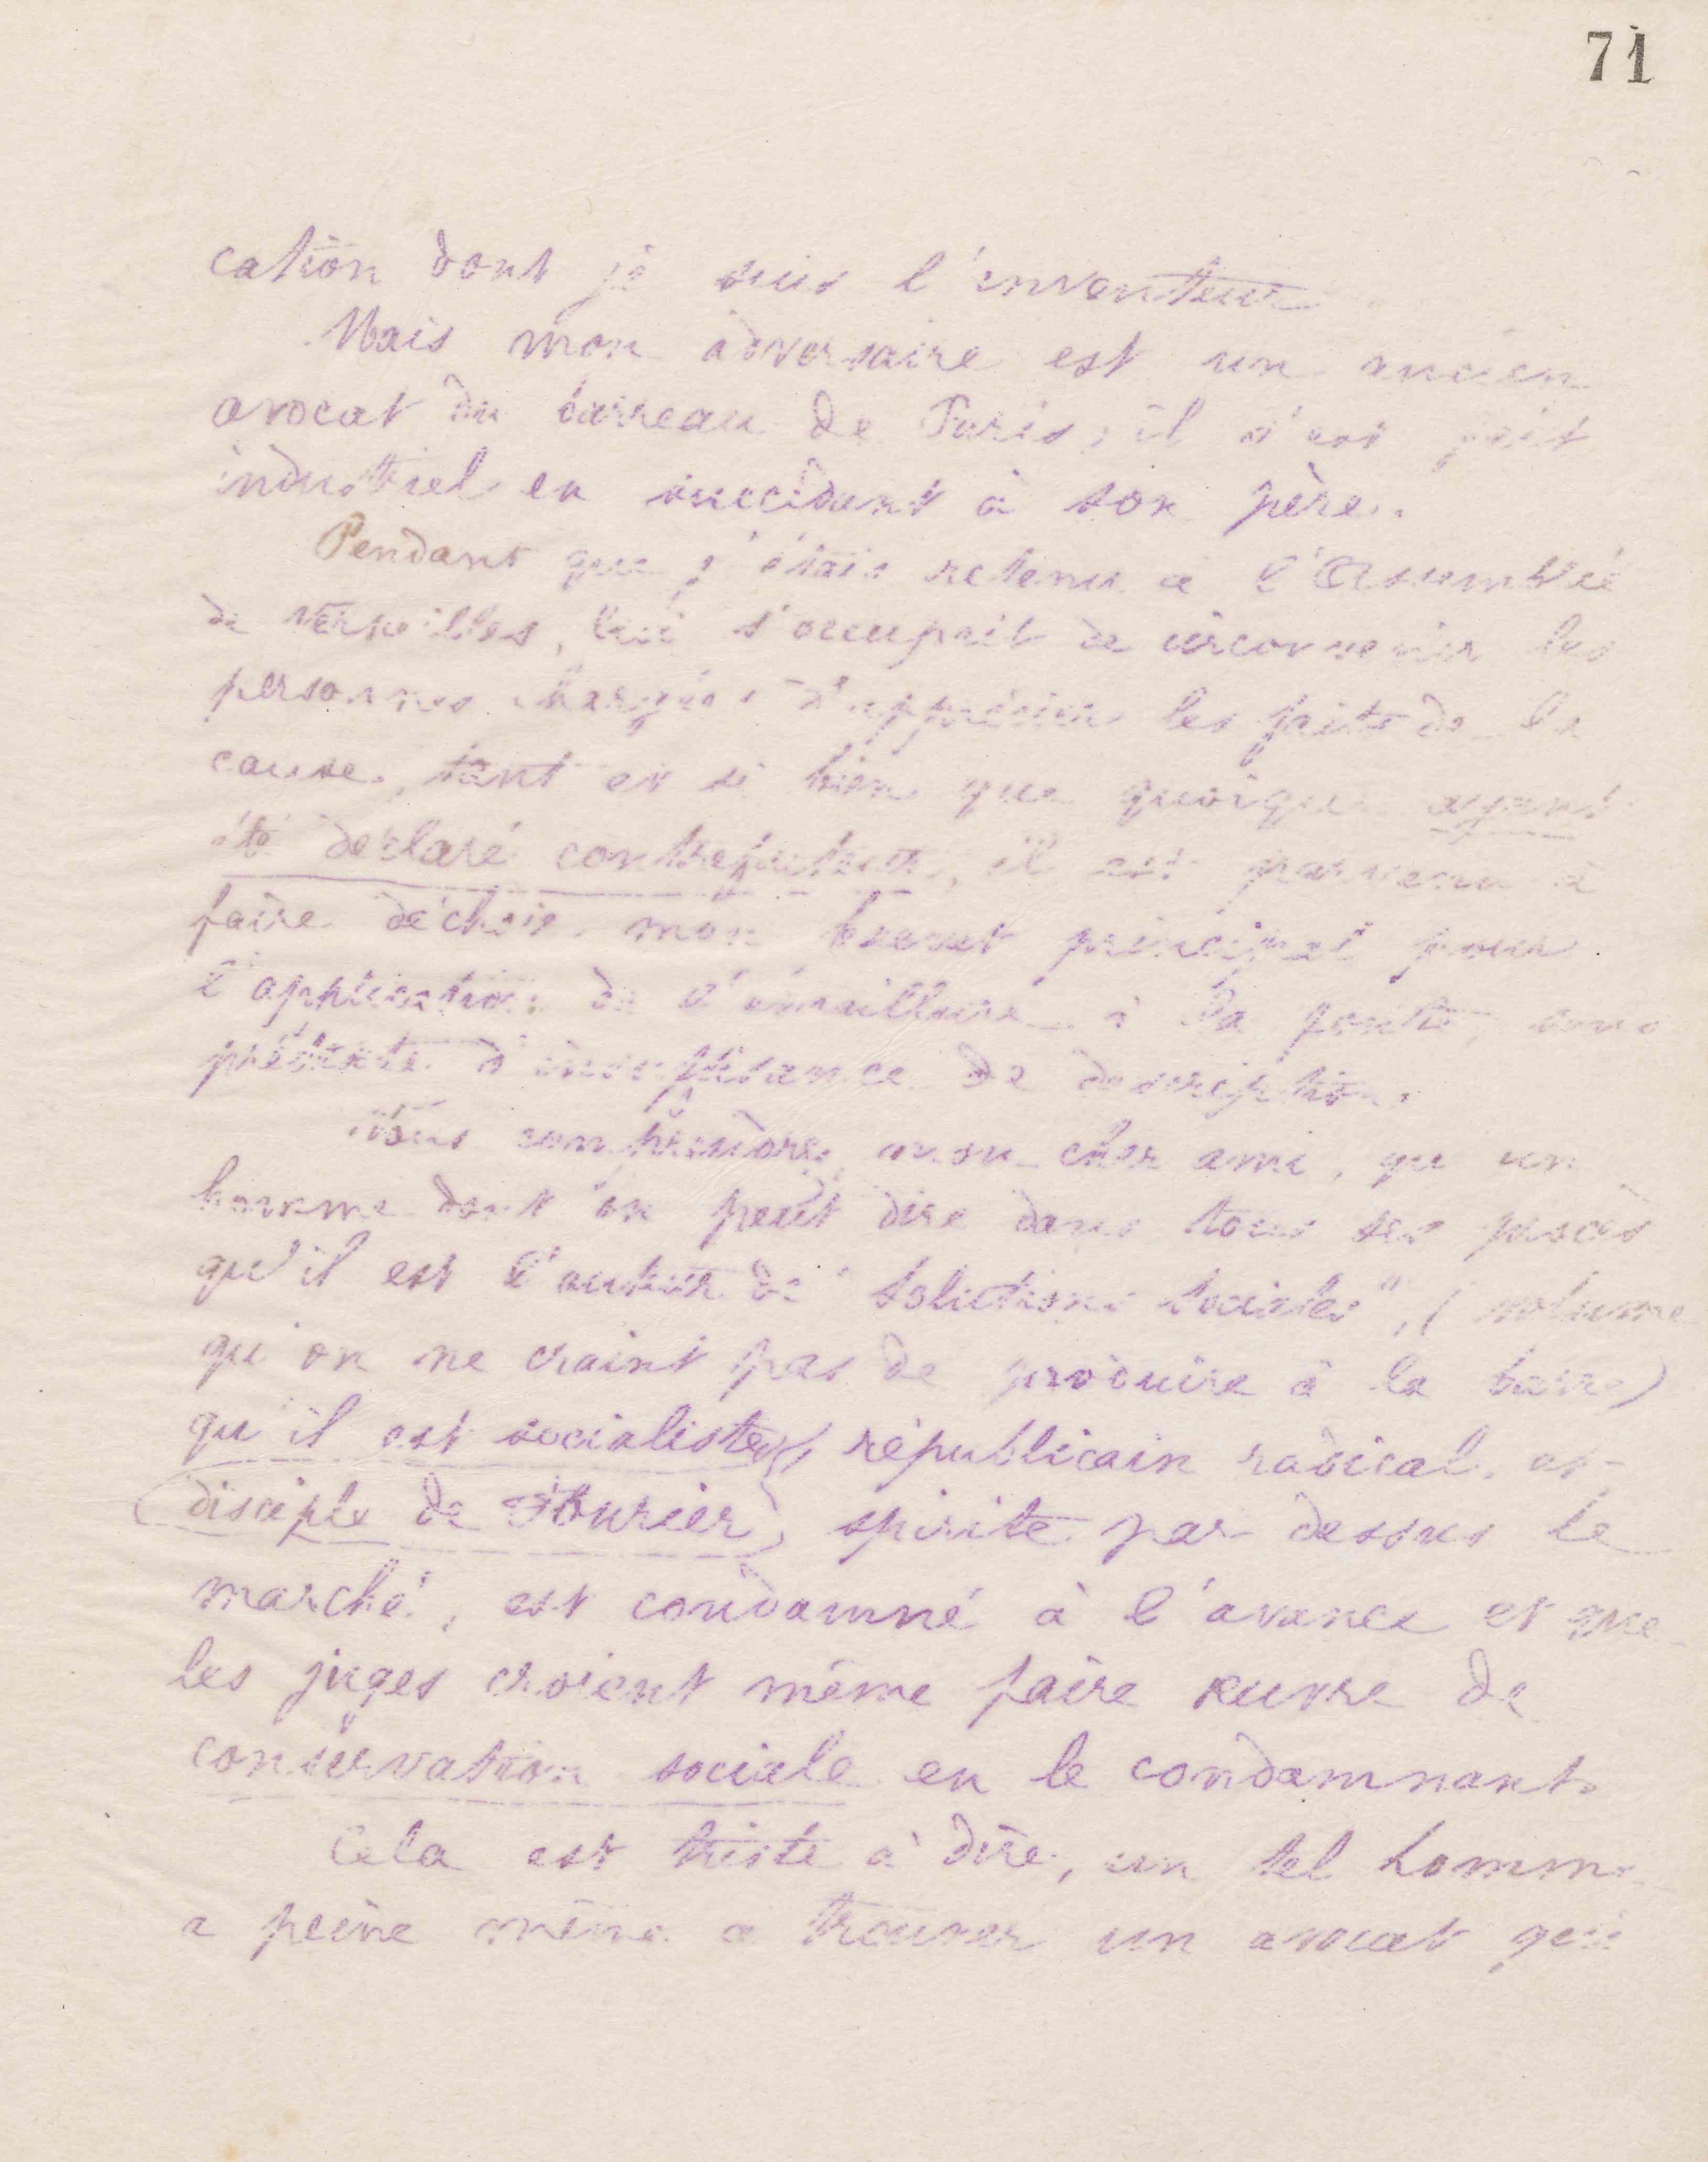 71
cation dont je suis l'inventeur.
Mais mon adversaire est un ancien
avocat du barreau de Paris, il s'est fait
industriel en succédant à son père.
Pendant que j'étais retenu à l'Assemblée
de Versailles, lui s'occupait de circonvenir les
personnes chargées d'apprécier les faits de la
cause, tant et si bien que quoique ayant
été déclaré contrefacteur, il est parvenu à
faire déchoir mon brevet principal pour
l'application de l'émaillure à la fonte, sous
prétexte d'insuffisance de description.
Vous comprendrez, mon cher ami, qu'un
homme dont on peut dire dans tous ses procès
qu'il est l'auteur de "Solutions sociales", (volume
qu'on ne craint pas de produire à la barre)
qu'il est socialiste, républicain radical, et
(disciple de Fourier), spirite par dessus le
marché, est condamné à l'avance et que
les juges croient même faire œuvre de
conservation sociale en le condamnant.
Cela est triste à dire, un tel homme
a peine même à trouver un avocat qui